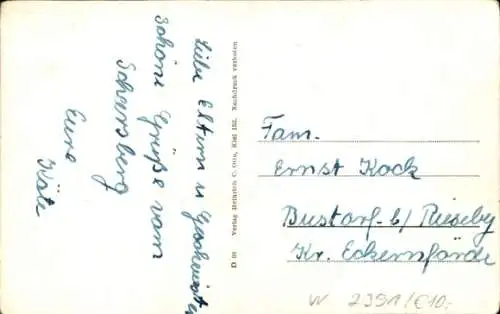 Liebe Eltern u Geschwister
Schöne Grüße vom
Scheersberg
Eure
Käte
D 90 Verlag Heinrich C. Otto, Kiel 152. Nachdruck verboten
Fam.
Ernst Kock
Bustorf b/ Rieseby
Kr. Eckernförde
W 2391/€10,-